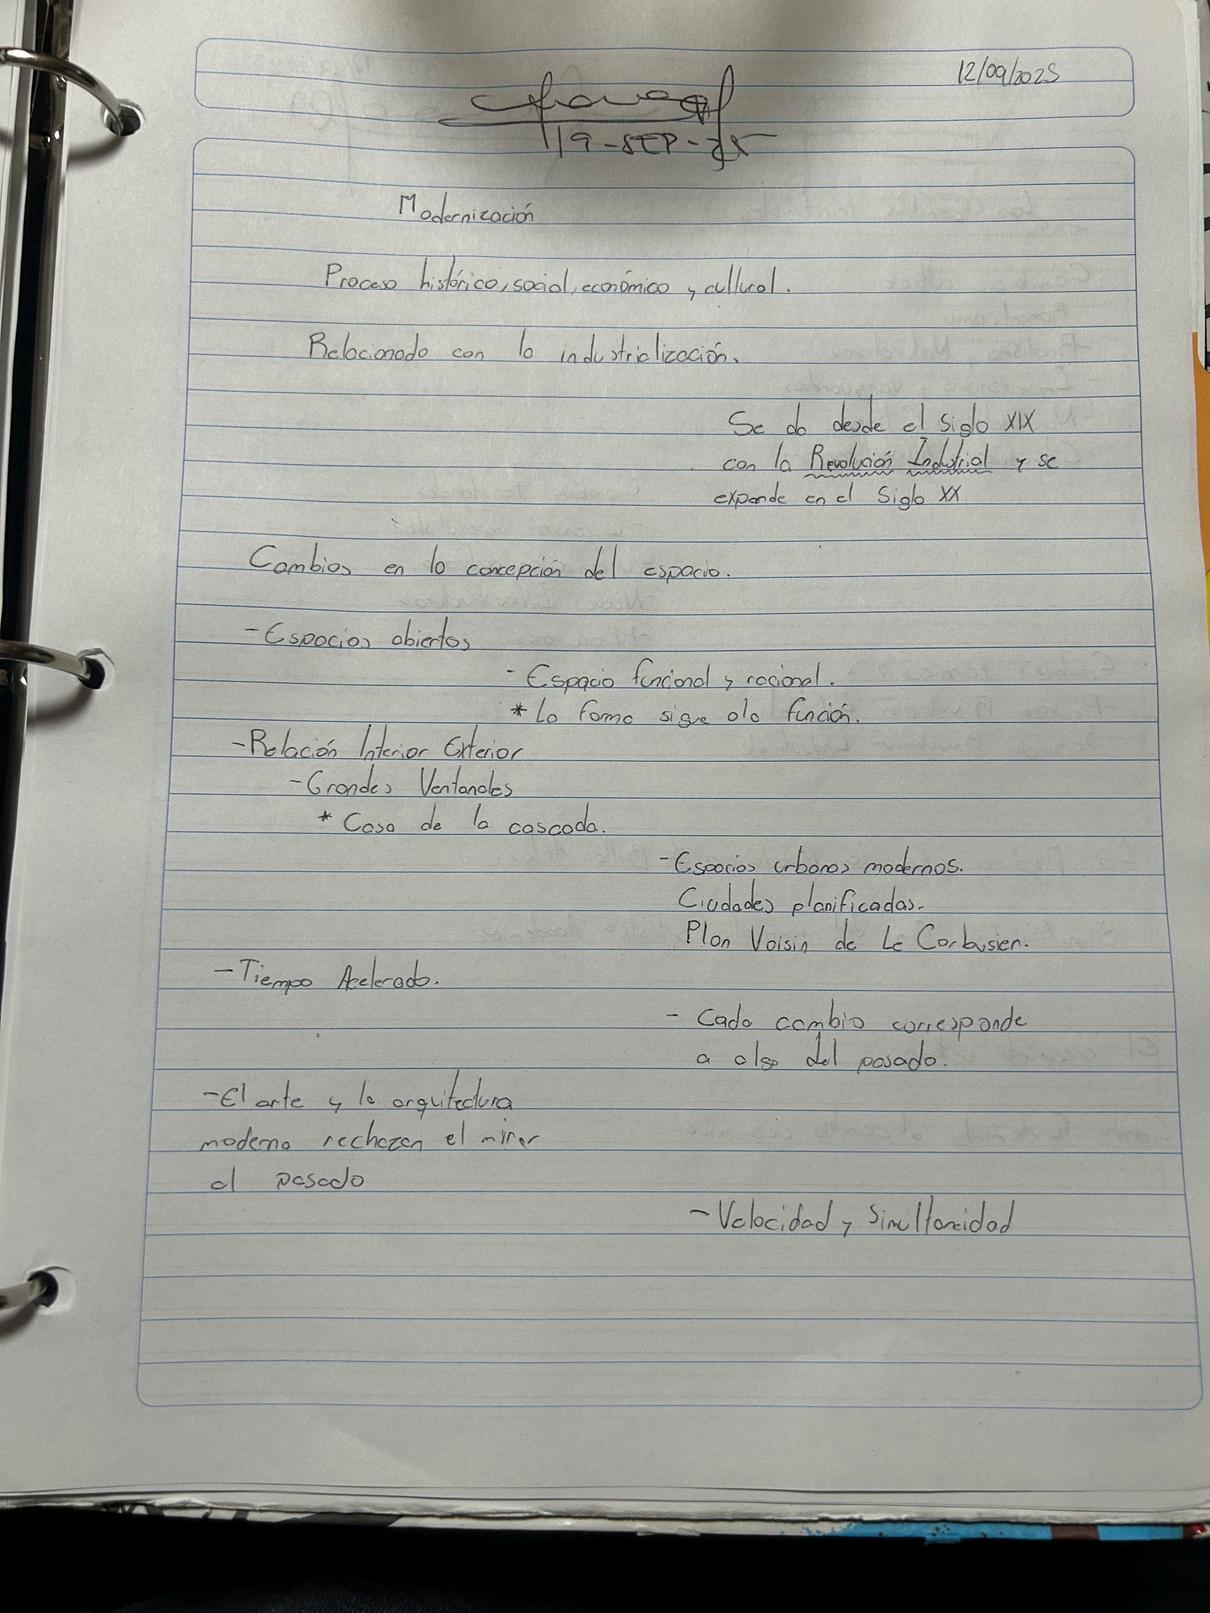 12/09/2025
19-SEP-25
Modernización
Proceso histórico, social, económico y cultural.
Relacionado con la industrialización.
Se da desde el Siglo XIX
con la Revolución Industrial y se
expande en el Siglo XX
Cambios en la concepción del espacio.
- Espacios abiertos
- Espacio funcional y racional.
* La forma sigue a la función.
- Relación Interior Exterior
- Grandes Ventanales
* Casa de la cascada.
- Espacios urbanos modernos.
Ciudades planificadas.
Plan Voisin de Le Corbusier.
- Tiempo Acelerado.
- Cada cambio corresponde
a algo del pasado.
- El arte y la arquitectura
moderna rechazan el mirar
al pasado
- Velocidad y Simultaneidad